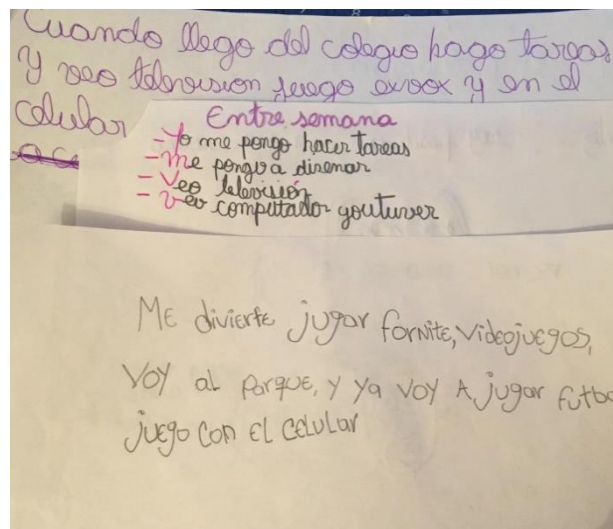 Cuando llego del colegio hago tareas
y veo television juego exvox y en el
celular
Entre semana
- Yo me pongo hacer tareas
- me pongo a dirенar
- Veo televisión
- veo computador youtuver
ME divierte jugar fornite, videojuegos,
Voy al parque, y ya voy A jugar futbo
juego con El celular